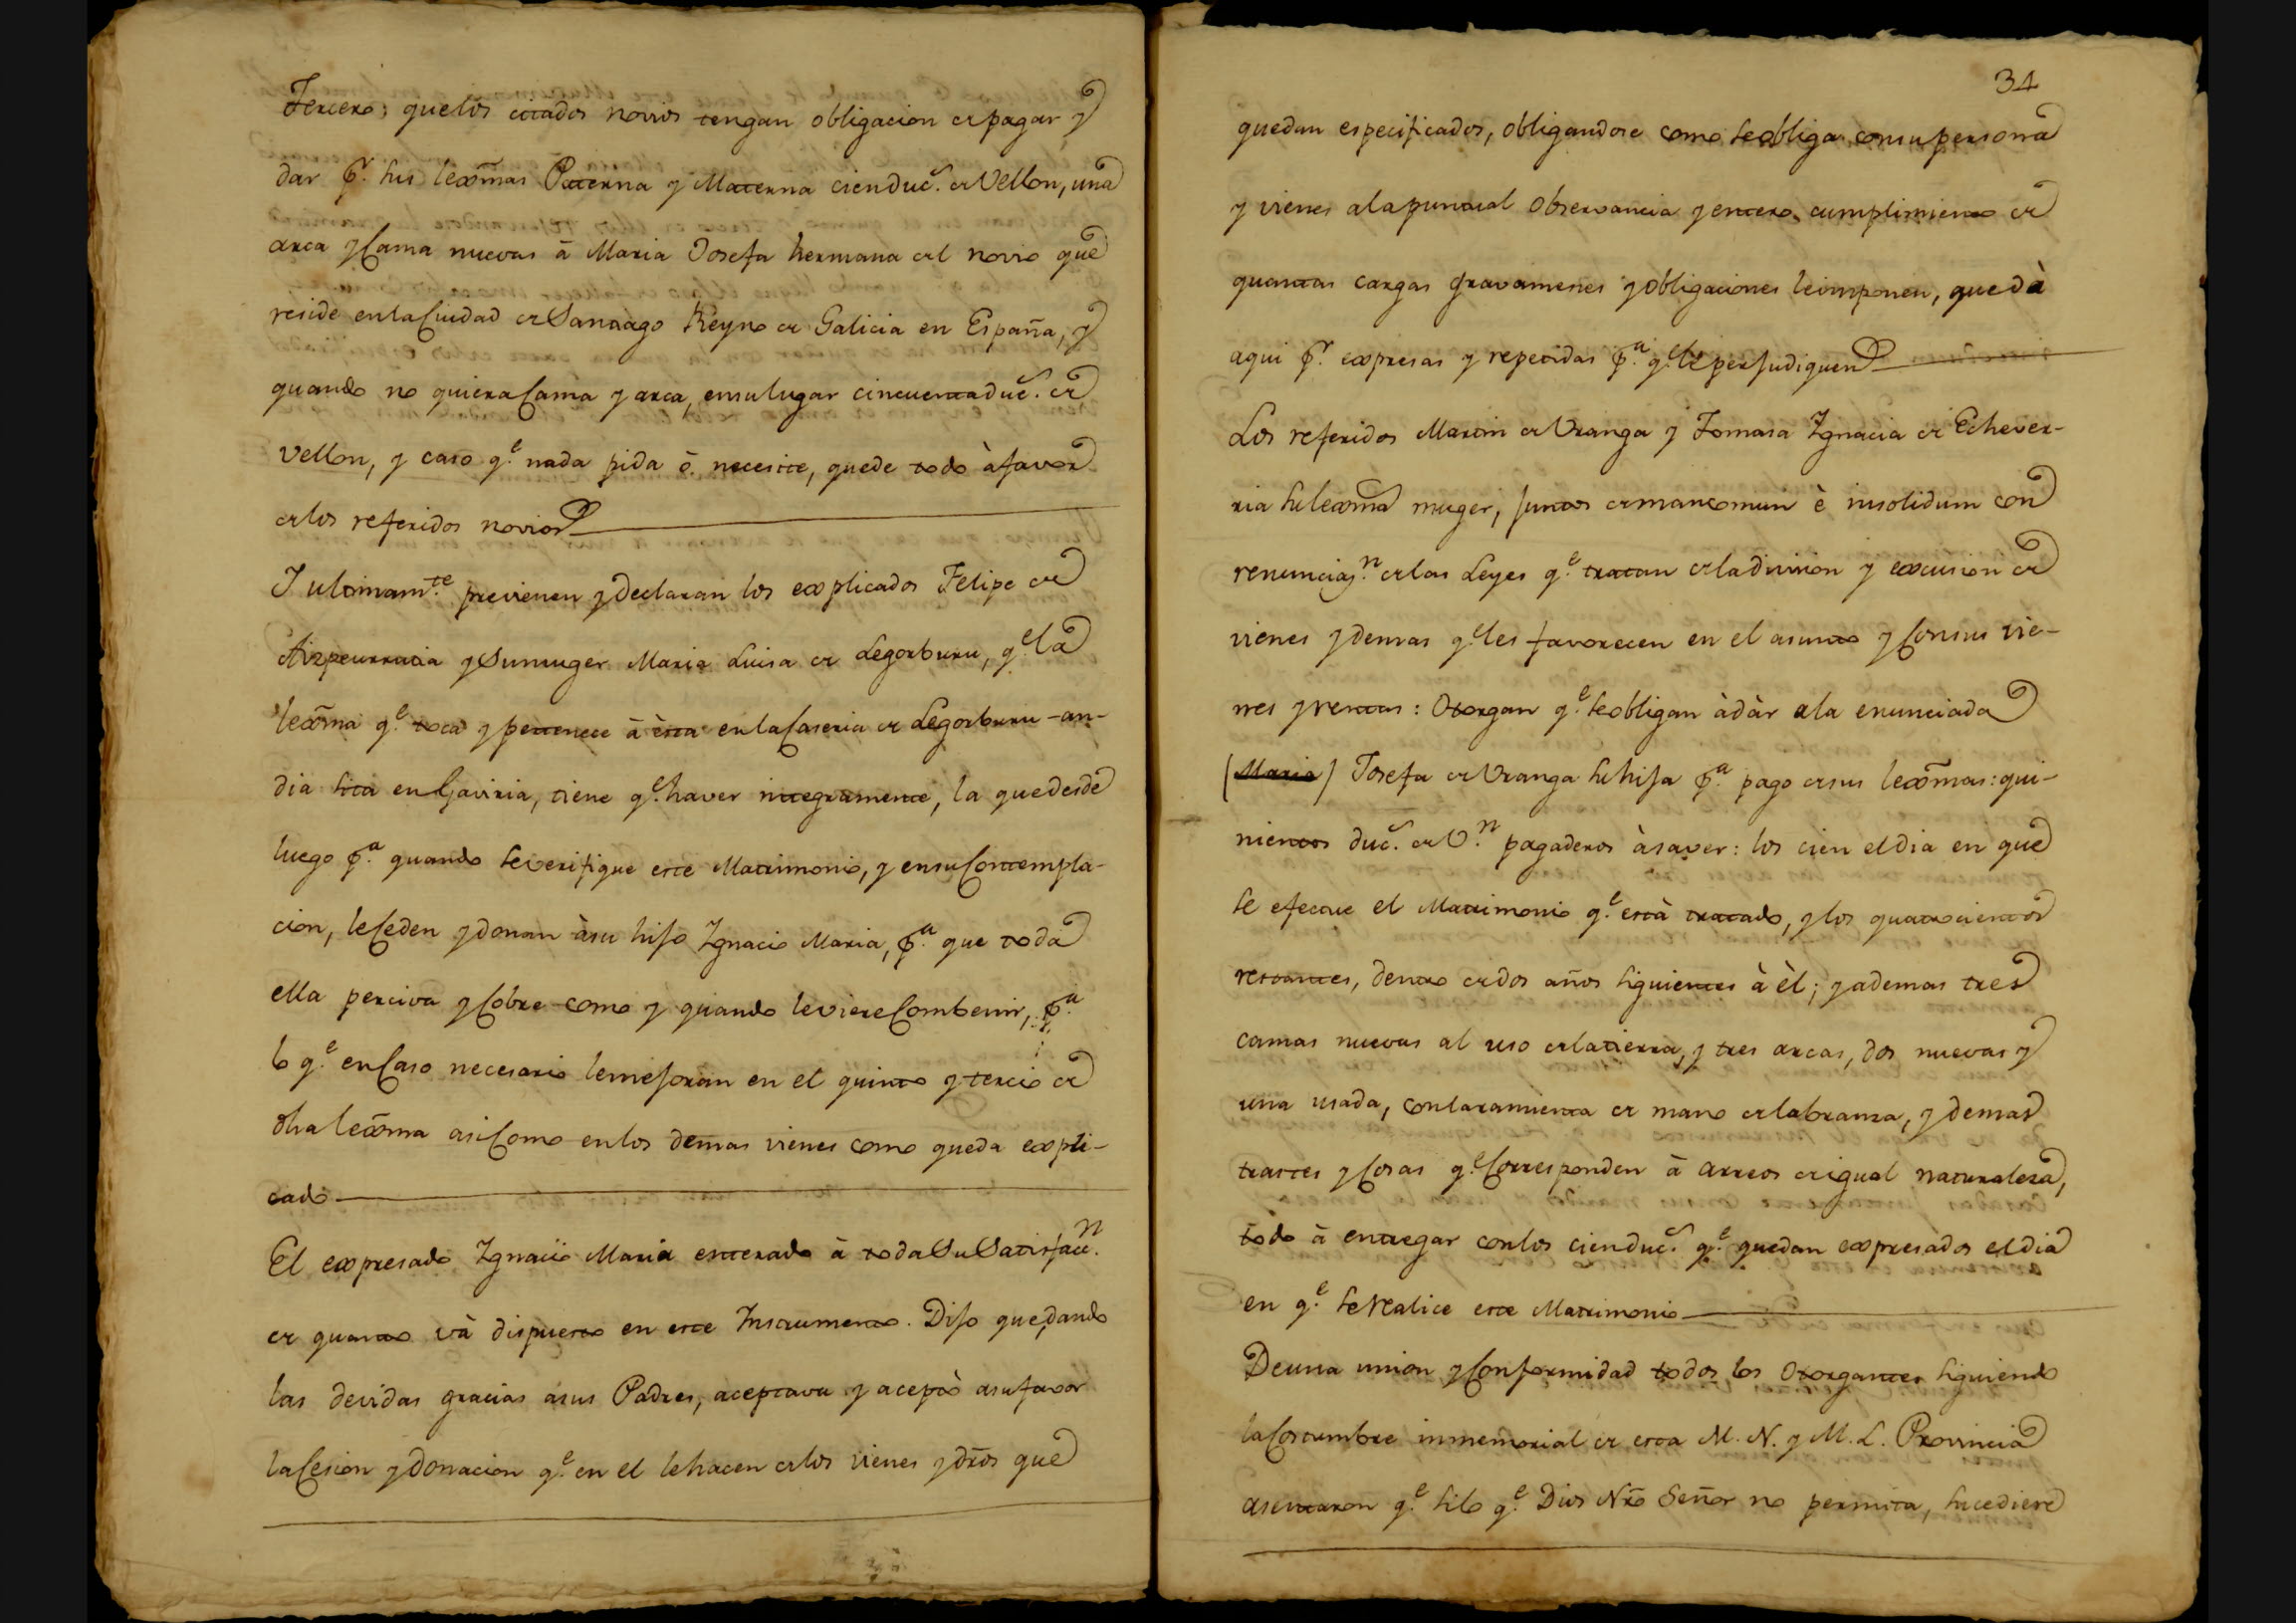 Tercero; que los citados novios tengan obligacion de pagar y
dar pr. sus lexmas Paterna y Materna cien ducs. de Vellon, una
arca y Cama nuevas â Maria Josefa hermana del novio que
reside en la Ciudad de Santiago Reyno de Galicia en España, y
quando no quiera Cama y arca, en su lugar cincuenta ducs. de
Vellon, y caso qe. nada pida ô necesite, quede todo à favor
de los referidos novios
Y ultimamte. previenen y declaran los explicados Felipe de
Aizpeurrutia y Su muger Maria Luisa de Legorburu, qe. la
lexma qe. toca y pertenece â èsta en la Caseria de Legorburu-an-
dia sita en Gaviria, tiene qe. haver integramente, la que desde
luego pa. quando se verifique este Matrimonio, y en su Contempla-
cion, le Ceden y donan àsu hijo Ignacio Maria, pa. que toda
ella perciva y Cobre como y quando le viere Combenir, pa.
lo qe. en Caso necesario le mejoran en el quinto y tercio de
dha lexma asi Como en los demas vienes como queda expli-
cado
El expresado Ignacio Maria enterado à toda Su Satisfaccn.
de quanto và dispuesto en este Instrumento. Dijo que, dando
las devidas gracias àsus Padres, aceptava y aceptò asu favor
la Cesion y donacion qe. en el le hacen de los vienes y dros que
34
quedan especificados, obligandose como se obliga con su persona
y vienes ala puntual observancia y entero cumplimiento de
quantas cargas gravamenes y obligaciones le imponen, que dà
aqui pr. expresas y repetidas pa. qe. le perjudiquen
Los referidos Martin de Uranga y Tomasa Ignacia de Echever-
ria su lexma muger, juntos de mancomun è insolidum con
renunciaen. de las Leyes qe. tratan de la division y excusion de
vienes y demas qe. les favorecen en el asunto y Con sus vie-
nes y rentas: Otorgan qe. se obligan àdàr ala enunciada
(Maria) Josefa de Uranga su hija pa. pago de sus lexmas: qui-
nientos ducs. de Vn. pagaderos àsaver: los cien el dia en que
se efectue el Matrimonio qe. està tratado, y los quatrocientos
restantes, dentro de dos años siguientes à èl; y ademas tres
camas nuevas al uso de la tierra, y tres arcas, dos nuevas y
una usada, con la ramienta de mano de labranza, y demas
trastes y Cosas qe. Corresponden à arreos de igual naturaleza,
todo à entregar con los cien ducs. qe. quedan expresados el dia
en qe. se realice este Matrimonio
De una union y Conformidad todos los Otorgantes siguiendo
la Costumbre inmemorial de esta M. N. y M. L. Provincia
asentaron qe. si lo qe. Dios Nro Señor no permita, sucediere